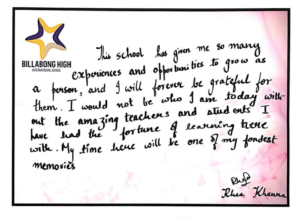 BILLABONG HIGH
INTERNATIONAL SCHOOL
This school has given me so many
experiences and opportunities to grow as
a person, and I will forever be grateful for
them. I would not be who I am today with-
out the amazing teachers and students I
have had the fortune of learning here
with. My time here will be one of my fondest
memories
Rhea Khanna